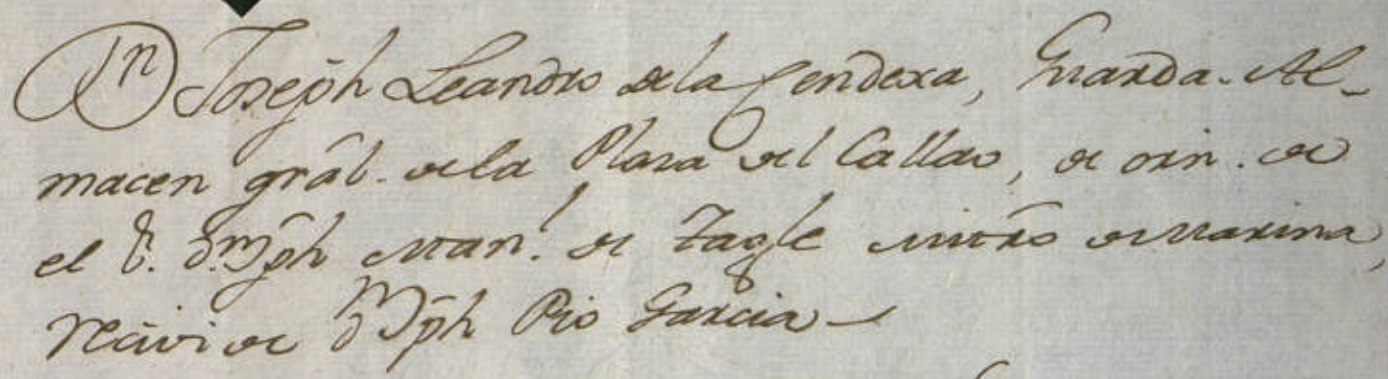 Dn Joseph Leandro dela Cendexa, Guarda-Al-
macen gral. dela Plaza del Callao, de orn. de
el S. Dn. Jph Man.l de Tagle Mntro de Marina,
Recivi de Dn Jph Pio Garcia